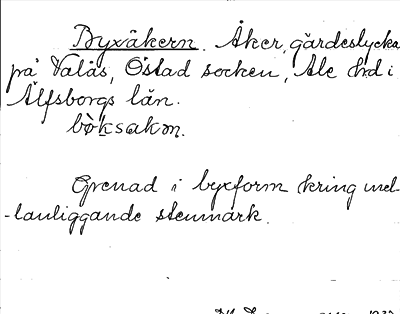 Byxåkern. Åker, gärdeslycka
på Valås, Östad socken, Ale hd i
Älfsborgs län.
bòksakɷn.
Grenad i byxform kring mel-
-lanliggande stenmark.